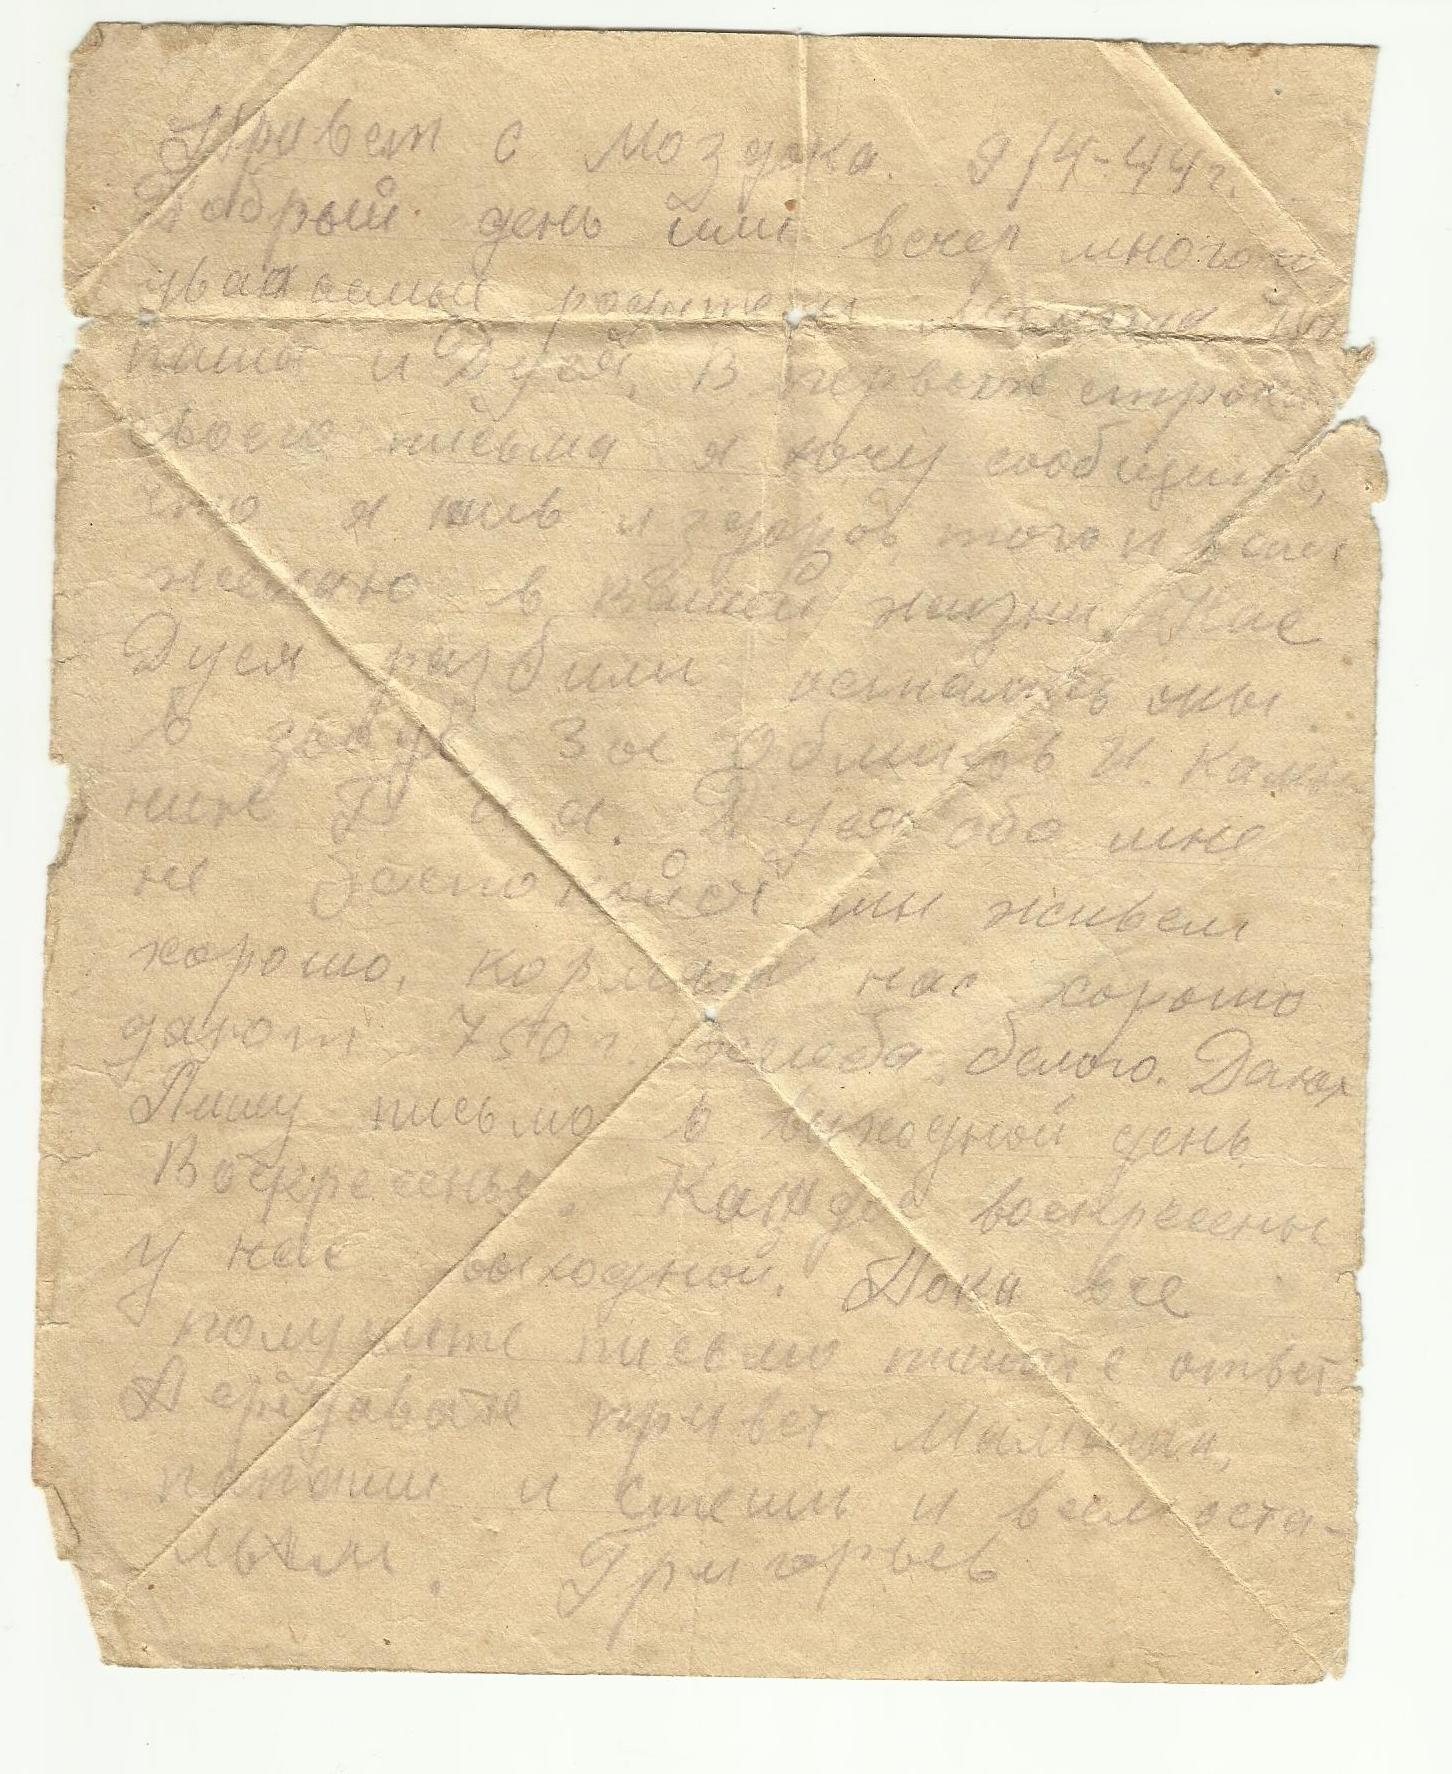 Привет с Моздока. 9/4-44 г.
Добрый день или вечер много
уважаемые родители Мамаша Па
паша и Дуся. В первых строках
своего письма я хочу сообщить,
что я жив и здоров того и вам
желаю в вашей жизни. Нас
Дуся разбили остались мы
в 3 ое Облицов И. Кали
нин Г и я. Дуся обо мне
не беспокойся мы живем
хорошо. Кормят нас хорошо
дают 750 г. хлеба белого.
Пишу письмо в выходной день
Воскресенье. Каждое воскресенье
у нас выходной. Пока все
получите письмо пишите ответ
Передавайте привет Мамаши,
папаши и Стеши и всем оста-
льным. Григорьев